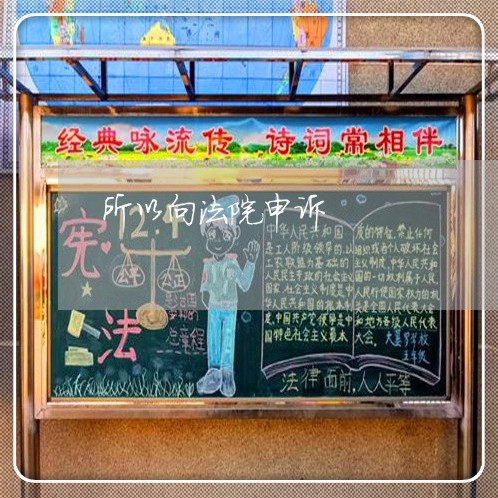 经典咏流传 诗词常相伴
所以向法院申诉
12.4
宪法
公平
公正
总章程
中华人民共和国
是工人阶级领导的,以
工农联盟为基础的
人民民主专政的社会主义
国家,社会主义制度是中
华人民共和国的根本制
度,中国共产党领导是中
国特色社会主义最本
质的特征,禁止任何
组织或者个人破坏社会
主义制度,中华人民共和
国的一切权利属于人民,
人民行使国家权力的机
关是全国人民代表大会
和地方各级人民代表
大会。
五年级
法律面前,人人平等